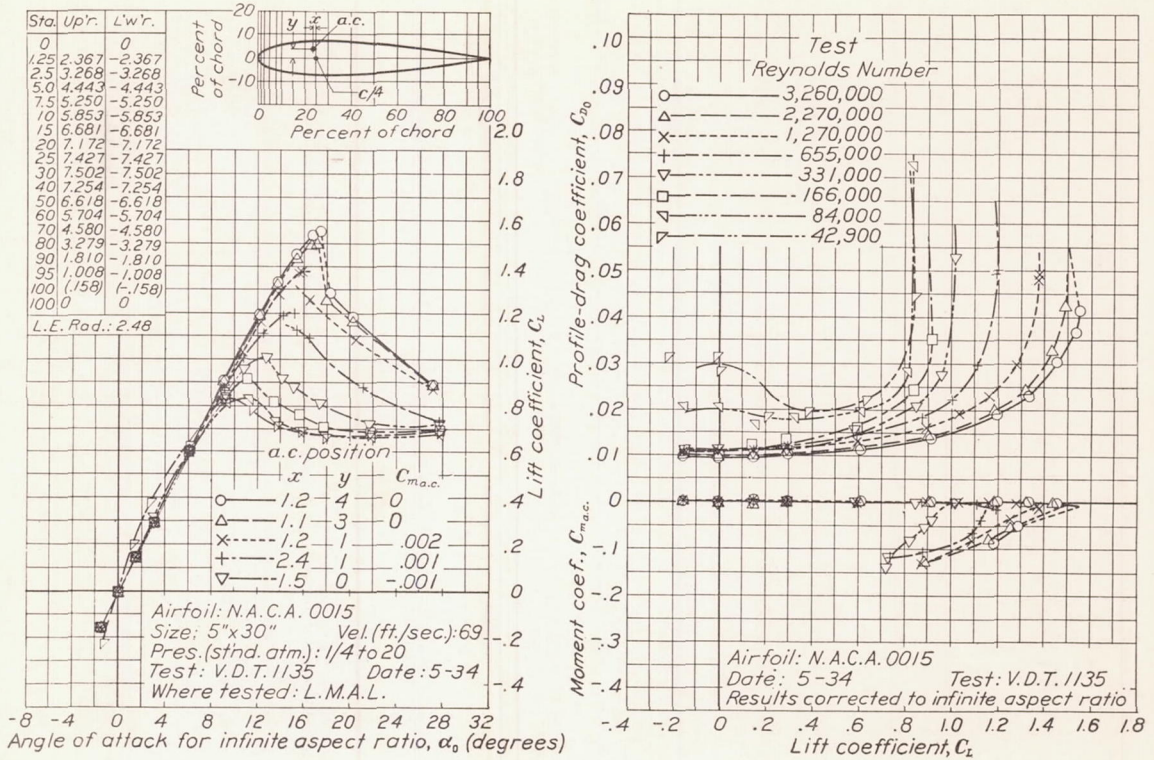 Sta. Up'r. L'w'r.
0 0
1.25 2.367 -2.367
2.5 3.268 -3.268
5.0 4.443 -4.443
7.5 5.250 -5.250
10 5.853 -5.853
15 6.681 -6.681
20 7.172 -7.172
25 7.427 -7.427
30 7.502 -7.502
40 7.254 -7.254
50 6.618 -6.618
60 5.704 -5.704
70 4.580 -4.580
80 3.279 -3.279
90 1.810 -1.810
95 1.008 -1.008
100 (.158) (-.158)
100 0 0
L.E. Rad.: 2.48
Percent of chord
20
10
0
-10
y x a.c.
c/4
0 20 40 60 80 100
Percent of chord
2.0
1.8
1.6
1.4
1.2
1.0
.8
.6
.4
.2
0
-.2
-.4
Lift coefficient, CL
a.c. position
x y Cm a.c.
1.2 4 0
1.1 3 0
1.2 1 .002
2.4 1 .001
1.5 0 -.001
Airfoil: N.A.C.A. 0015
Size: 5"x30" Vel. (ft./sec.): 69
Pres. (st'nd. atm.): 1/4 to 20
Test: V.D.T. 1135 Date: 5-34
Where tested: L.M.A.L.
-8 -4 0 4 8 12 16 20 24 28 32
Angle of attack for infinite aspect ratio, α0 (degrees)
Test
Reynolds Number
3,260,000
2,270,000
1,270,000
655,000
331,000
166,000
84,000
42,900
.10
.09
.08
.07
.06
.05
.04
.03
.02
.01
0
Profile-drag coefficient, CD0
-.1
-.2
-.3
-.4
Moment coef., Cm a.c.
Airfoil: N.A.C.A. 0015
Date: 5-34 Test: V.D.T. 1135
Results corrected to infinite aspect ratio
-.4 -.2 0 .2 .4 .6 .8 1.0 1.2 1.4 1.6 1.8
Lift coefficient, CL